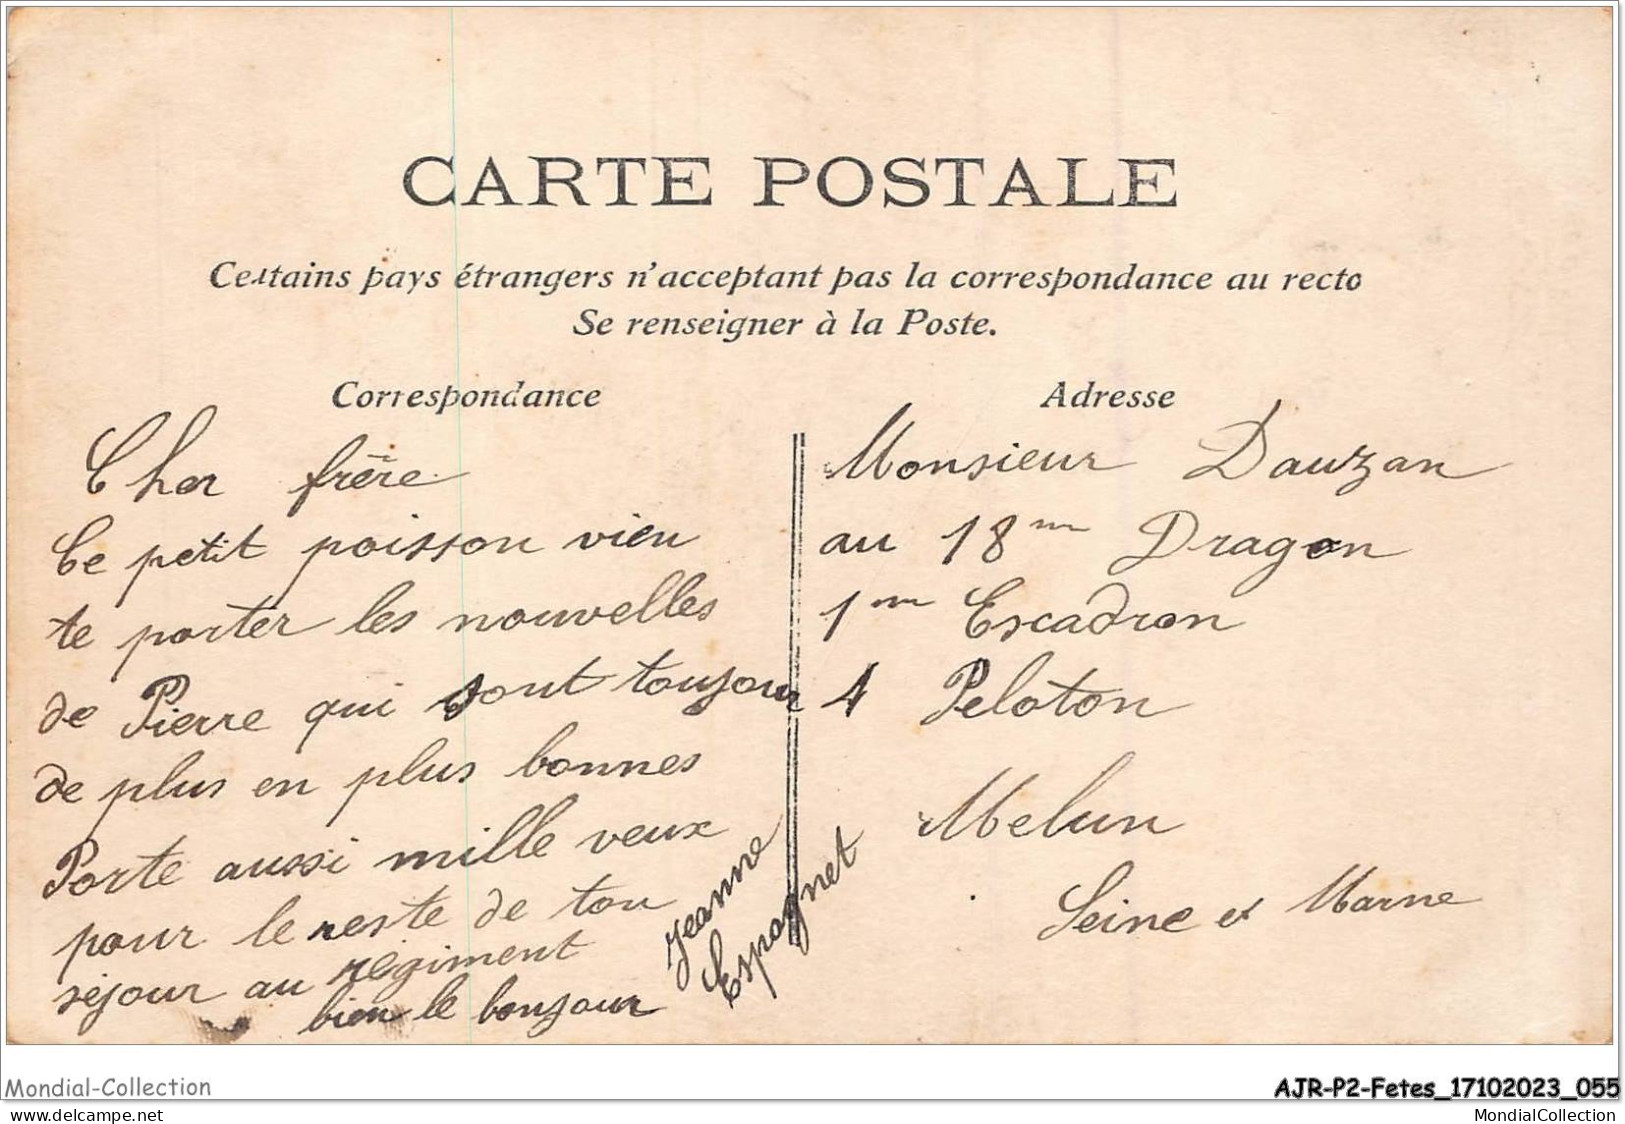 CARTE POSTALE
Certains pays étrangers n'acceptant pas la correspondance au recto
Se renseigner à la Poste.
Correspondance
Cher frère
Ce petit poisson vien
te porter les nouvelles
de Pierre qui sont toujour
de plus en plus bonnes
Porte aussi mille veux
pour le reste de ton
séjour au regiment
bien le bonjour
Jeanne
Espagnet
Adresse
Monsieur Dauzan
au 18me Dragon
1me Escadron
4 Peloton
Melun
Seine et Marne
Mondial-Collection
AJR-P2-Fetes_17102023_055
www.delcampe.net
MondialCollection